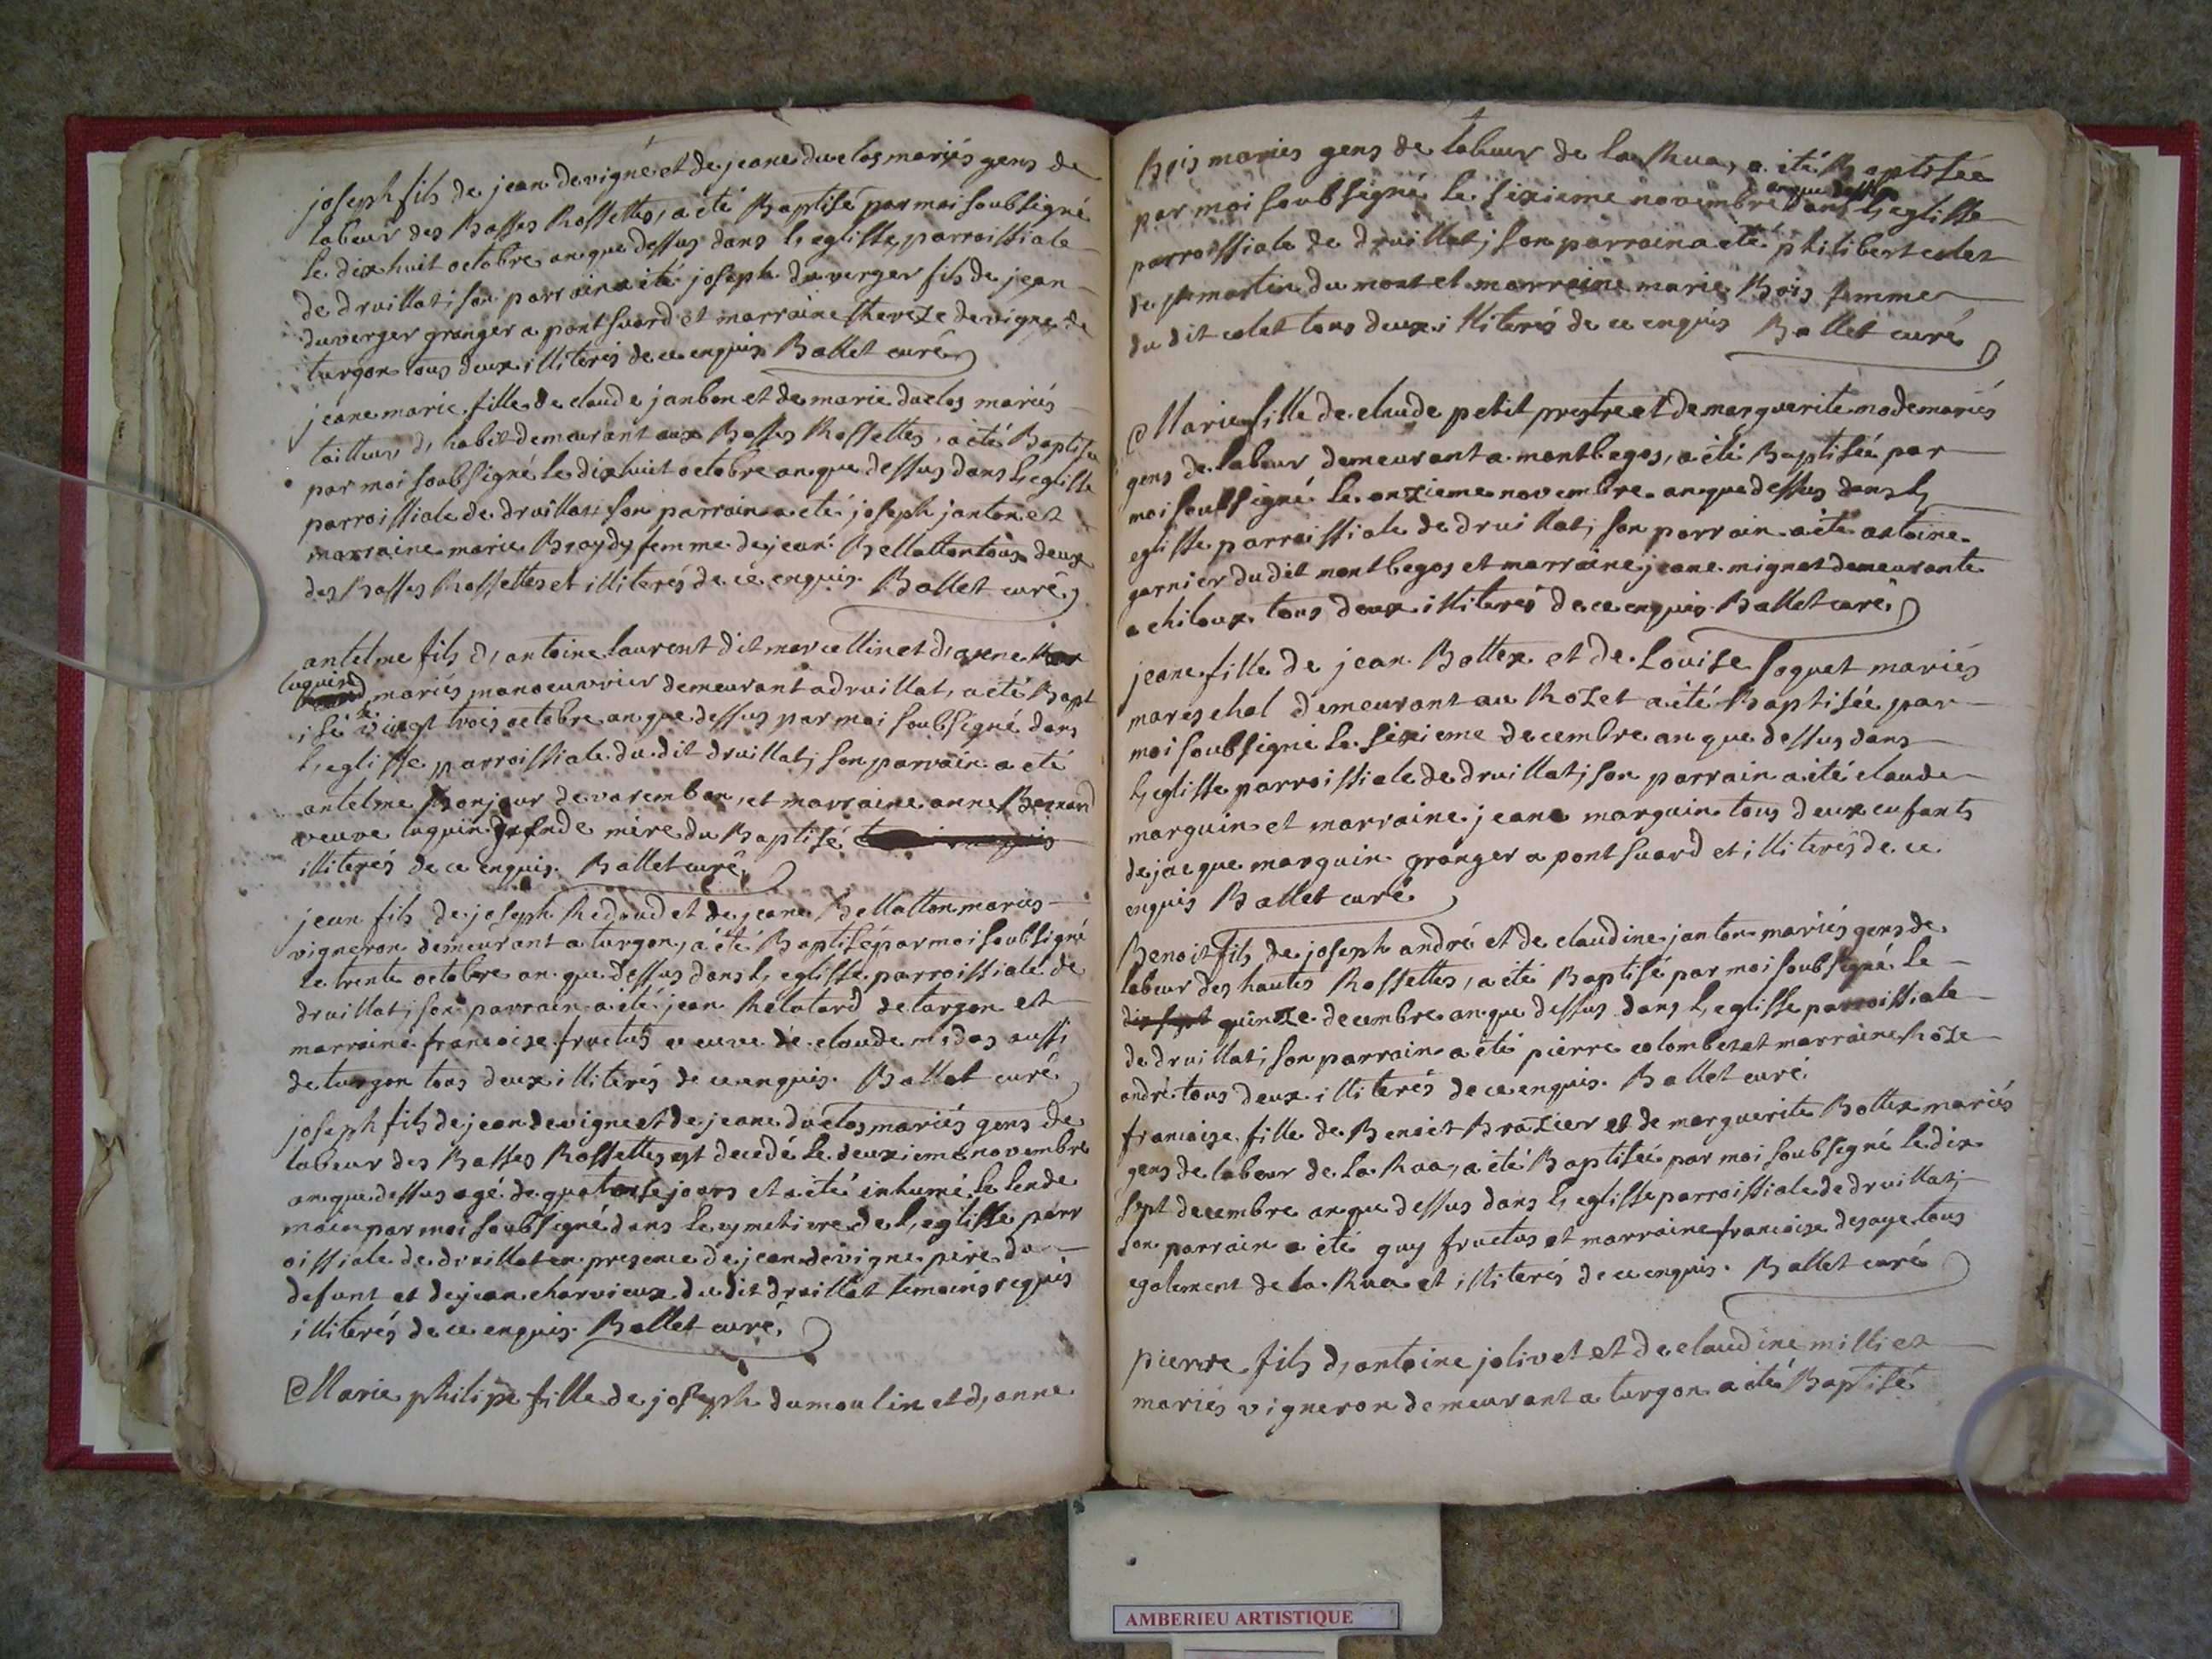 joseph fils de jean devigne et de jeane duclos mariés gens de
labeur des Basses Rossettes, a été Baptisé par moi soubsigné
le dix huit octobre an que dessus dans l'eglisse parroissiale
de druillat; son parrain a été joseph duverger fils de jean
duverger granger a pont suard et marraine thereze devigne de
turgon tous deux illiterés de ce enquis. Ballet curé
jeane marie fille de claude janbon et de marie duclos mariés
tailleur d'habit demeurant aux Basses Rossettes, a été Baptisée
par moi soubsigné le dixhuit octobre an que dessus dans l'eglisse
parroissiale de druillat; son parrain a été joseph janton et
marraine marie femme de jean Bellatton tous deux
des Basses Rossettes et illiterés de ce enquis. Ballet curé
antelme fils d'antoine laurent dit marcellin et d'anne
luquin mariés manoeuvrier demeurant a druillat, a été Bapt
isé le vingt trois octobre an que dessus par moi soubsigné dans
l'eglisse parroissiale du dit druillat; son parrain a été
antelme Bonjour de varembon, et marraine anne Bernard
veuve luquin grande mère du Baptisé
illiterés de ce enquis. Ballet curé
jean fils de joseph Redoud et de jeane Bellatton mariés
vigneron demeurant a turgon, a été Baptisé par moi soubsigné
le trente octobre an que dessus dans l'eglisse parroissiale de
druillat; son parrain a été jean Relatard de turgon et
marraine francoise fructus veuve de claude midas aussi
de turgon tous deux illiterés de ce enquis. Ballet curé
joseph fils de jean devigne et de jeane duclos mariés gens de
labeur des Basses Rossettes est decedé le deuxieme novembre
an que dessus agé de quatorse jours et a été inhumé le lende
main par moi soubsigné dans le cymetiere de l'eglisse parr
oissiale de druillat en presence de jean devigne père du
defunt et de jean charvieux du dit druillat temoins requis
illiterés de ce enquis. Ballet curé
Marie philipe fille de joseph dumoulin et d'anne
Bois mariés gens de labeur de la Rua, a été Baptisée
par moi soubsigné le sixieme novembre an que dessus dans l'eglisse
parroissiale de druillat; son parrain a été philibert colet
de st martin du mont et marraine marie Bois femme
du dit colet tous deux illiterés de ce enquis Ballet curé
Marie fille de claude petit prestre et de marguerite mode mariés
gens de labeur demeurant a montbegos, a été Baptisée par
moi soubsigné le onzieme novembre an que dessus dans l'
eglisse parroissiale de druillat; son parrain a été antoine
garnier du dit montbegos et marraine jeane mignot demeurante
a chiloux tous deux illiterés de ce enquis. Ballet curé
jeane fille de jean Bottex et de Louise soquet mariés
mareschal demeurant au Rozet a été Baptisée par
moi soubsigné le sixieme decembre an que dessus dans
l'eglisse parroissiale de druillat; son parrain a été claude
marguin et marraine jeane marguin tous deux enfants
de jacque marguin granger a pont suard et illiterés de ce
enquis Ballet curé
Benoit fils de joseph andré et de claudine janton mariés gens de
labeur des hautes Rossettes, a été Baptisé par moi soubsigné le
dix sept quinze decembre an que dessus dans l'eglisse parroissiale
de druillat; son parrain a été pierre colombet et marraine Roze
andré tous deux illiterés de ce enquis. Ballet curé.
francoise fille de Benoit Brazier et de marguerite Bottex mariés
gens de labeur de la Rua, a été Baptisée par moi soubsigné le dix
sept decembre an que dessus dans l'eglisse parroissiale de druillat;
son parrain a été guy fructus et marraine francoise desaye tous
egalement de la Rua et illiterés de ce enquis. Ballet curé
pierre fils d'antoine jolivet et de claudine milliex
mariés vigneron demeurant a turgon a été Baptisé
AMBERIEU ARTISTIQUE